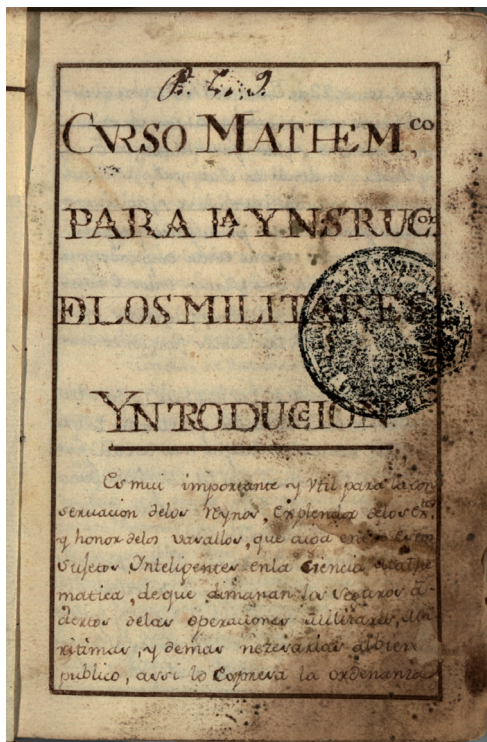 CVRSO MATHEM,co
PARA LA YNSTRUCcon
DE LOS MILITARES
YNTRODUCCION
Es mui importante y Vtil para la con
seruacion delos reynos, explendor delos
y honor delos vasallos, que aia entre estos
Sujetos Ynteligentes enla Ciencia Mathe
matica, de que dimanan los seguros a-
ciertos delas operaciones Militares, Ma
ritimas, y demas nezesarias albien
publico, assi lo expresa la ordenanza